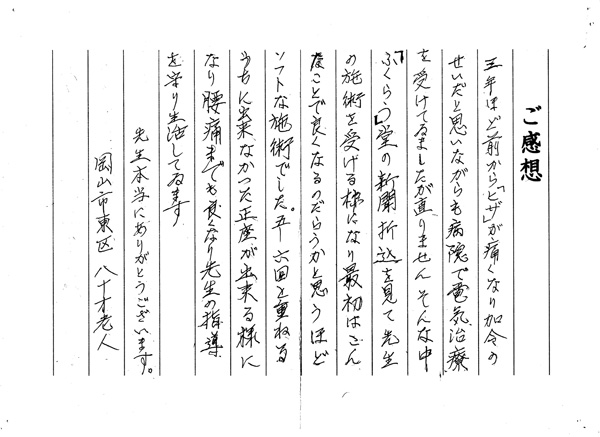 ご感想
三年ほど前から「ヒザ」が痛くなり加令の
せいだと思いながらも病院で電気治療
を受けてゐましたが直りません そんな中
「ふくろう」堂の新聞折込を見て先生
の施術を受ける様になり最初はこん
なことで良くなるのだらうかと思うほど
ソフトな施術でした。五~六回と重ねる
うちに出来なかった正座が出来る様に
なり腰痛までも良くなり先生の指導
を守り生活してゐます
先生本当にありがとうございます。
岡山市東区 八十才老人